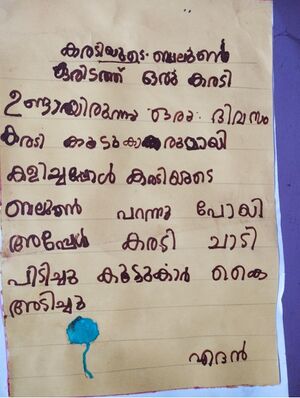 കരടിയുടെ ബലൂൺ
ഒരിടത്ത് ഒരു കരടി
ഉണ്ടായിരുന്നു ഒരു ദിവസം
കരടി കൂട്ടുകാരുമായി
കളിച്ചപ്പോൾ കരടിയുടെ
ബലൂൺ പറന്നു പോയി
അപ്പോൾ കരടി ചാടി
പിടിച്ചു കൂട്ടുകാർ കൈ
അടിച്ചു
ഏദൻ